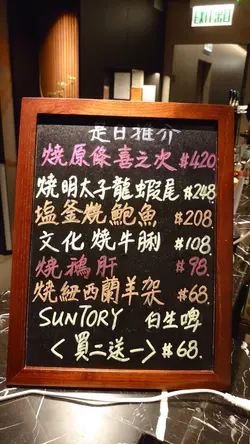 是日推介
燒原條喜之次 $420.
燒明太子龍蝦尾 $248
塩釜燒鮑魚 $208.
文化燒牛脷 $108
燒鵝肝 $98.
燒紐西蘭羊架 $68.
SUNTORY 白生啤
<買二送一> $68.